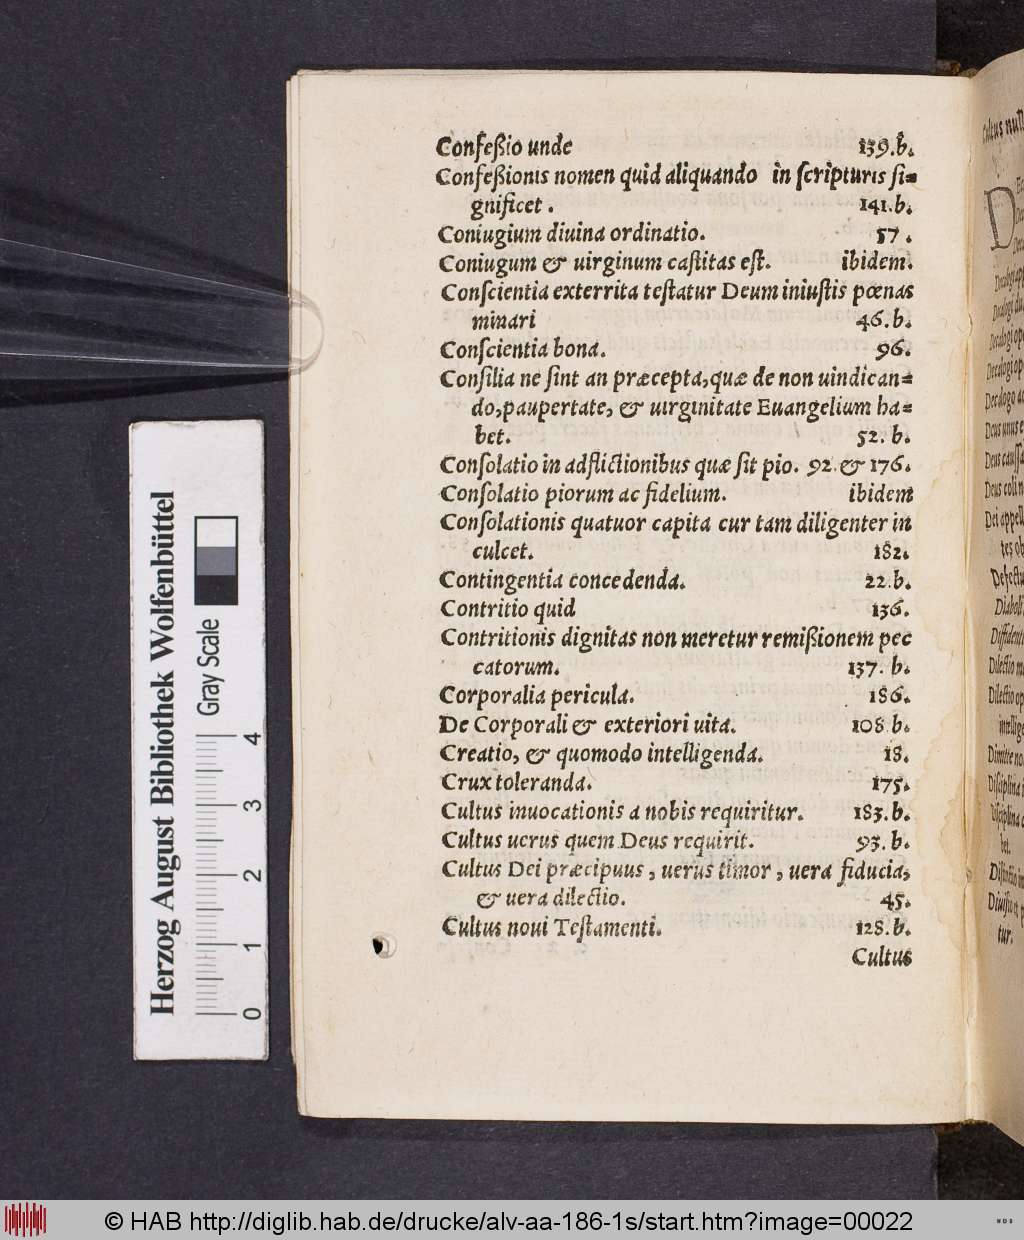 Confeßio unde 139.b.
Confeßionis nomen quid aliquando in ſcripturis ſi-
gnificet. 141.b.
Coniugium diuina ordinatio. 57.
Coniugum & uirginum caſtitas eſt. ibidem.
Conſcientia exterrita teſtatur Deum iniuſtis pœnas
minari 46.b.
Conſcientia bona. 96.
Conſilia ne ſint an præcepta, quæ de non uindican-
do, paupertate, & uirginitate Euangelium ha-
bet. 52. b.
Conſolatio in adflictionibus quæ ſit pio. 92. & 176.
Conſolatio piorum ac fidelium. ibidem
Conſolationis quatuor capita cur tam diligenter in
culcet. 182.
Contingentia concedenda. 22.b.
Contritio quid 136.
Contritionis dignitas non meretur remißionem pec
catorum. 137. b.
Corporalia pericula. 186.
De Corporali & exteriori uita. 108.b.
Creatio, & quomodo intelligenda. 18.
Crux toleranda. 175.
Cultus inuocationis a nobis requiritur. 183.b.
Cultus uerus quem Deus requirit. 93. b.
Cultus Dei præcipuus, uerus timor, uera fiducia,
& uera dilectio. 45.
Cultus noui Teſtamenti. 128.b.
Cultus
Herzog August Bibliothek Wolfenbüttel
Gray Scale
0 1 2 3 4
© HAB http://diglib.hab.de/drucke/alv-aa-186-1s/start.htm?image=00022